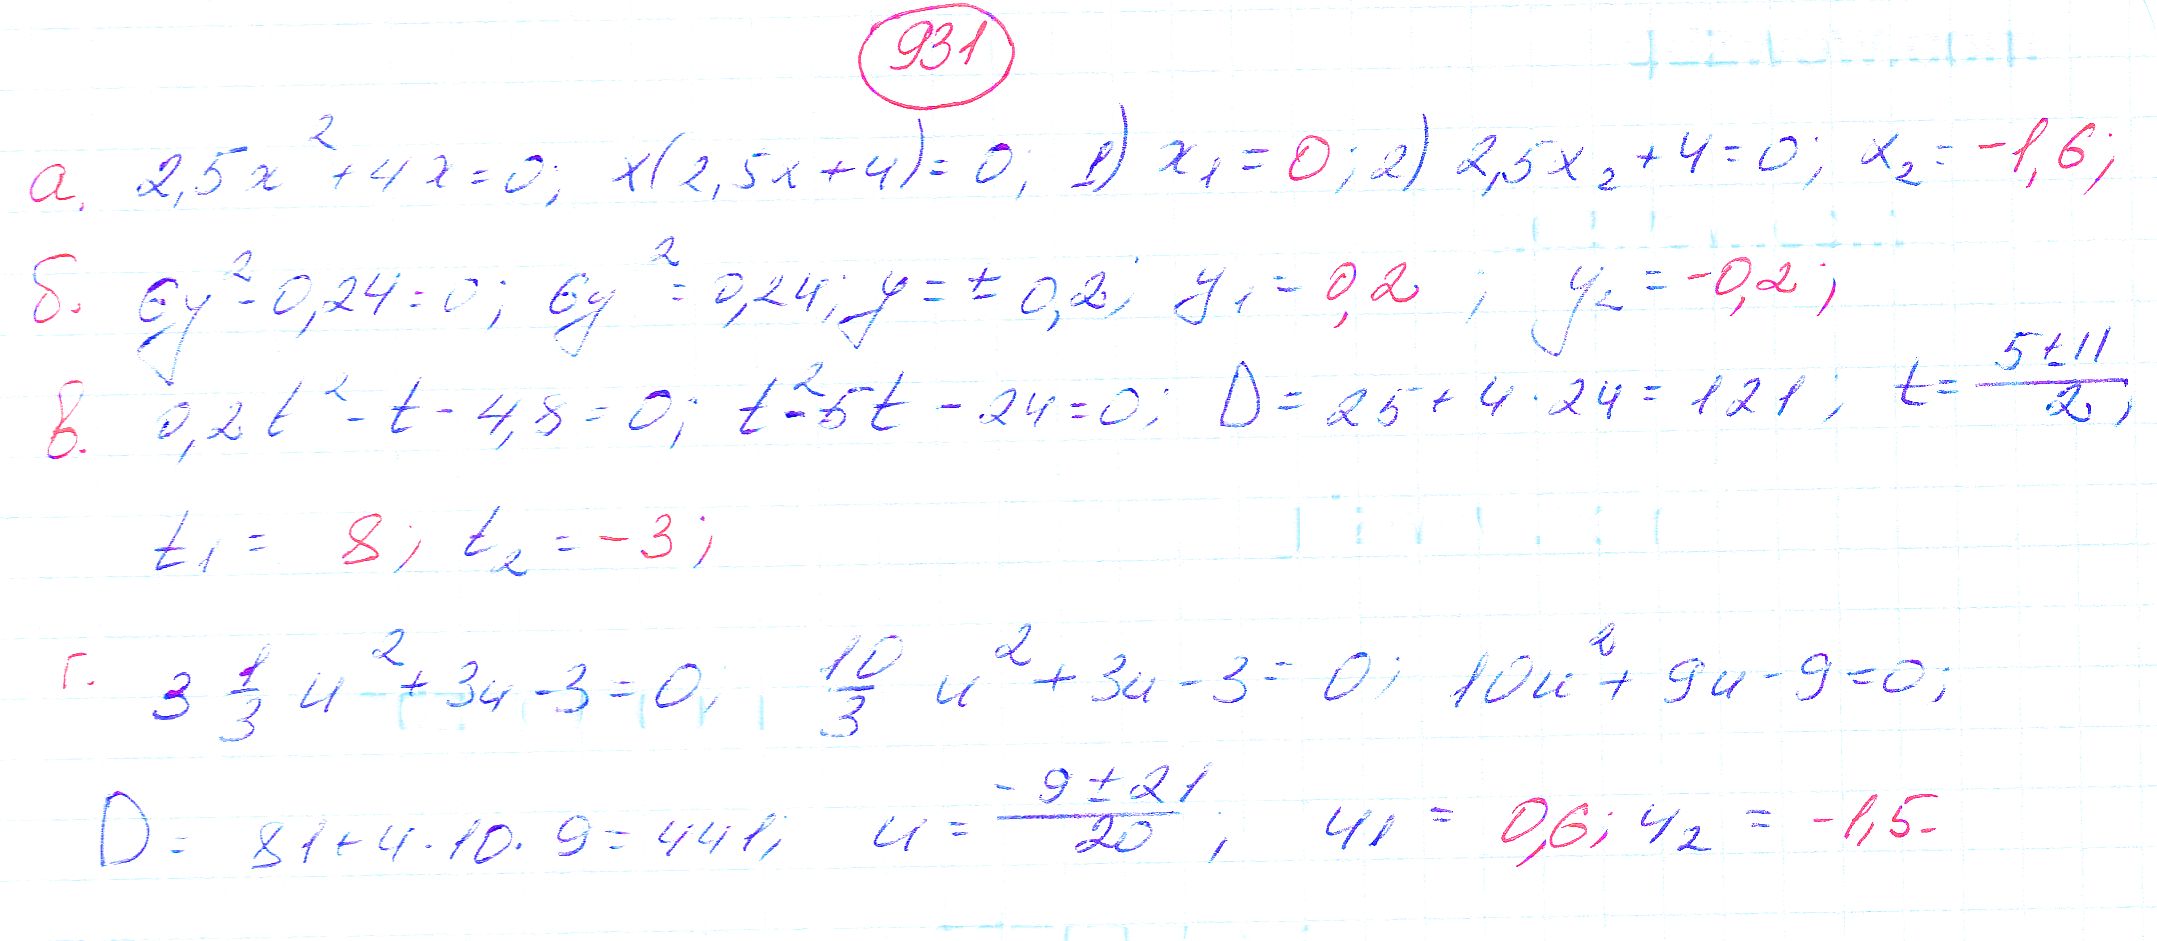 931
а. 2,5x²+4x=0; x(2,5x+4)=0; 1) x₁=0; 2) 2,5x₂+4=0; x₂=-1,6;
б. 6y²-0,24=0; 6y²=0,24; y=±0,2; y₁=0,2; y₂=-0,2;
в. 0,2t²-t-4,8=0; t²-5t-24=0; D=25+4·24=121; t=(5±11)/2;
t₁=8; t₂=-3;
г. 3 1/3 u²+3u-3=0; 10/3 u²+3u-3=0; 10u²+9u-9=0;
D=81+4·10·9=441; u=(-9±21)/20; u₁=0,6; u₂=-1,5.